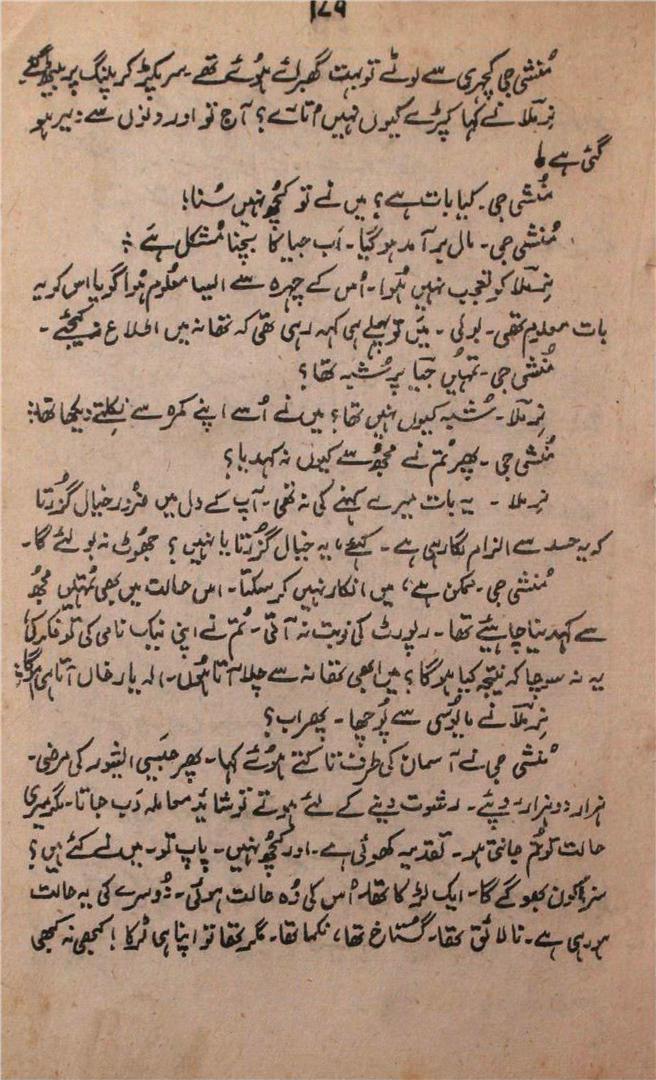 ۱۷۹
مُنشی جی کچہری سے لوٹے تو بہت گھبرائے ہوئے تھے۔ سر پکڑ کر پلنگ پر بیٹھ گئے
نِرملا نے کہا کپڑے کیوں نہیں اُتارتے؟ آج تو اور دنوں سے دیر ہو
گئی ہے۔
مُنشی جی۔ کیا بات ہے؟ میں نے تو کچھ نہیں سُنا!
مُنشی جی۔ مال برآمد ہو گیا۔ اَب جیا کا بچنا مُشکل ہے ؛
نِرملا کو تعجب نہیں ہُوا۔ اُس کے چہرہ سے ایسا معلوم ہُوا گویا اس کو یہ
بات معلوم تھی۔ بولی ۔ میں تو پہلے ہی کہہ رہی تھی کہ تھانہ میں اطلاع نہ کیجئے ۔
مُنشی جی۔ تمہیں جیا پر شُبہ تھا؟
نِرملا۔ شُبہ کیوں نہیں تھا؟ میں نے اُسے اپنے کمرہ سے نکلتے دیکھا تھا ؛
مُنشی جی ۔ پھر تُم نے مجھ سے کیوں نہ کہدیا؟
نرملا ۔ یہ بات میرے کہنے کی نہ تھی۔ آپ کے دل میں ضرور خیال گُزرتا
کہ یہ حسد سے الزام لگا رہی ہے ۔ کہئے، یہ خیال گُزرتا یا نہیں؟ جھوٹ نہ بولئے گا۔
مُنشی جی۔ ممکن ہے، میں انکار نہیں کر سکتا۔ اس حالت میں بھی تُمہیں مجھ
سے کہہ دینا چاہیئے تھا۔ رپورٹ کی نوبت نہ آتی۔ تُم نے اپنی نیک نامی کی تو فکر کی
یہ نہ سوچا کہ نتیجہ کیا ہو گا؟ میں ابھی تھانہ سے چلا آتا ہُوں۔ الہ یار خاں آتا ہی ہوگا ؛
نِرملا نے مایُوسی سے پُوچھا۔ پھر اب؟
مُنشی جی نے آسمان کی طرف تاکتے ہوئے کہا۔ پھر جیسی ایشور کی مرضی۔
ہزار دو ہزار روپئے۔ رشوت دینے کے لئے ہوتے تو شاید معاملہ دَب جاتا۔ مگر میری
حالت تو تُم جانتی ہو۔ تقدیر کھوئی ہے۔ اور کُچھ نہیں۔ پاپ تو میں نے کئے ہیں؟
سزا کون بھوگے گا۔ ایک لڑکا تھا۔ اُس کی وُہ حالت ہوئی۔ دُوسرے کی یہ حالت
ہو رہی ہے۔ نالائق تھا۔ گُستاخ تھا، نکما تھا۔ مگر تھا تو اپنا ہی لڑکا! کبھی نہ کبھی